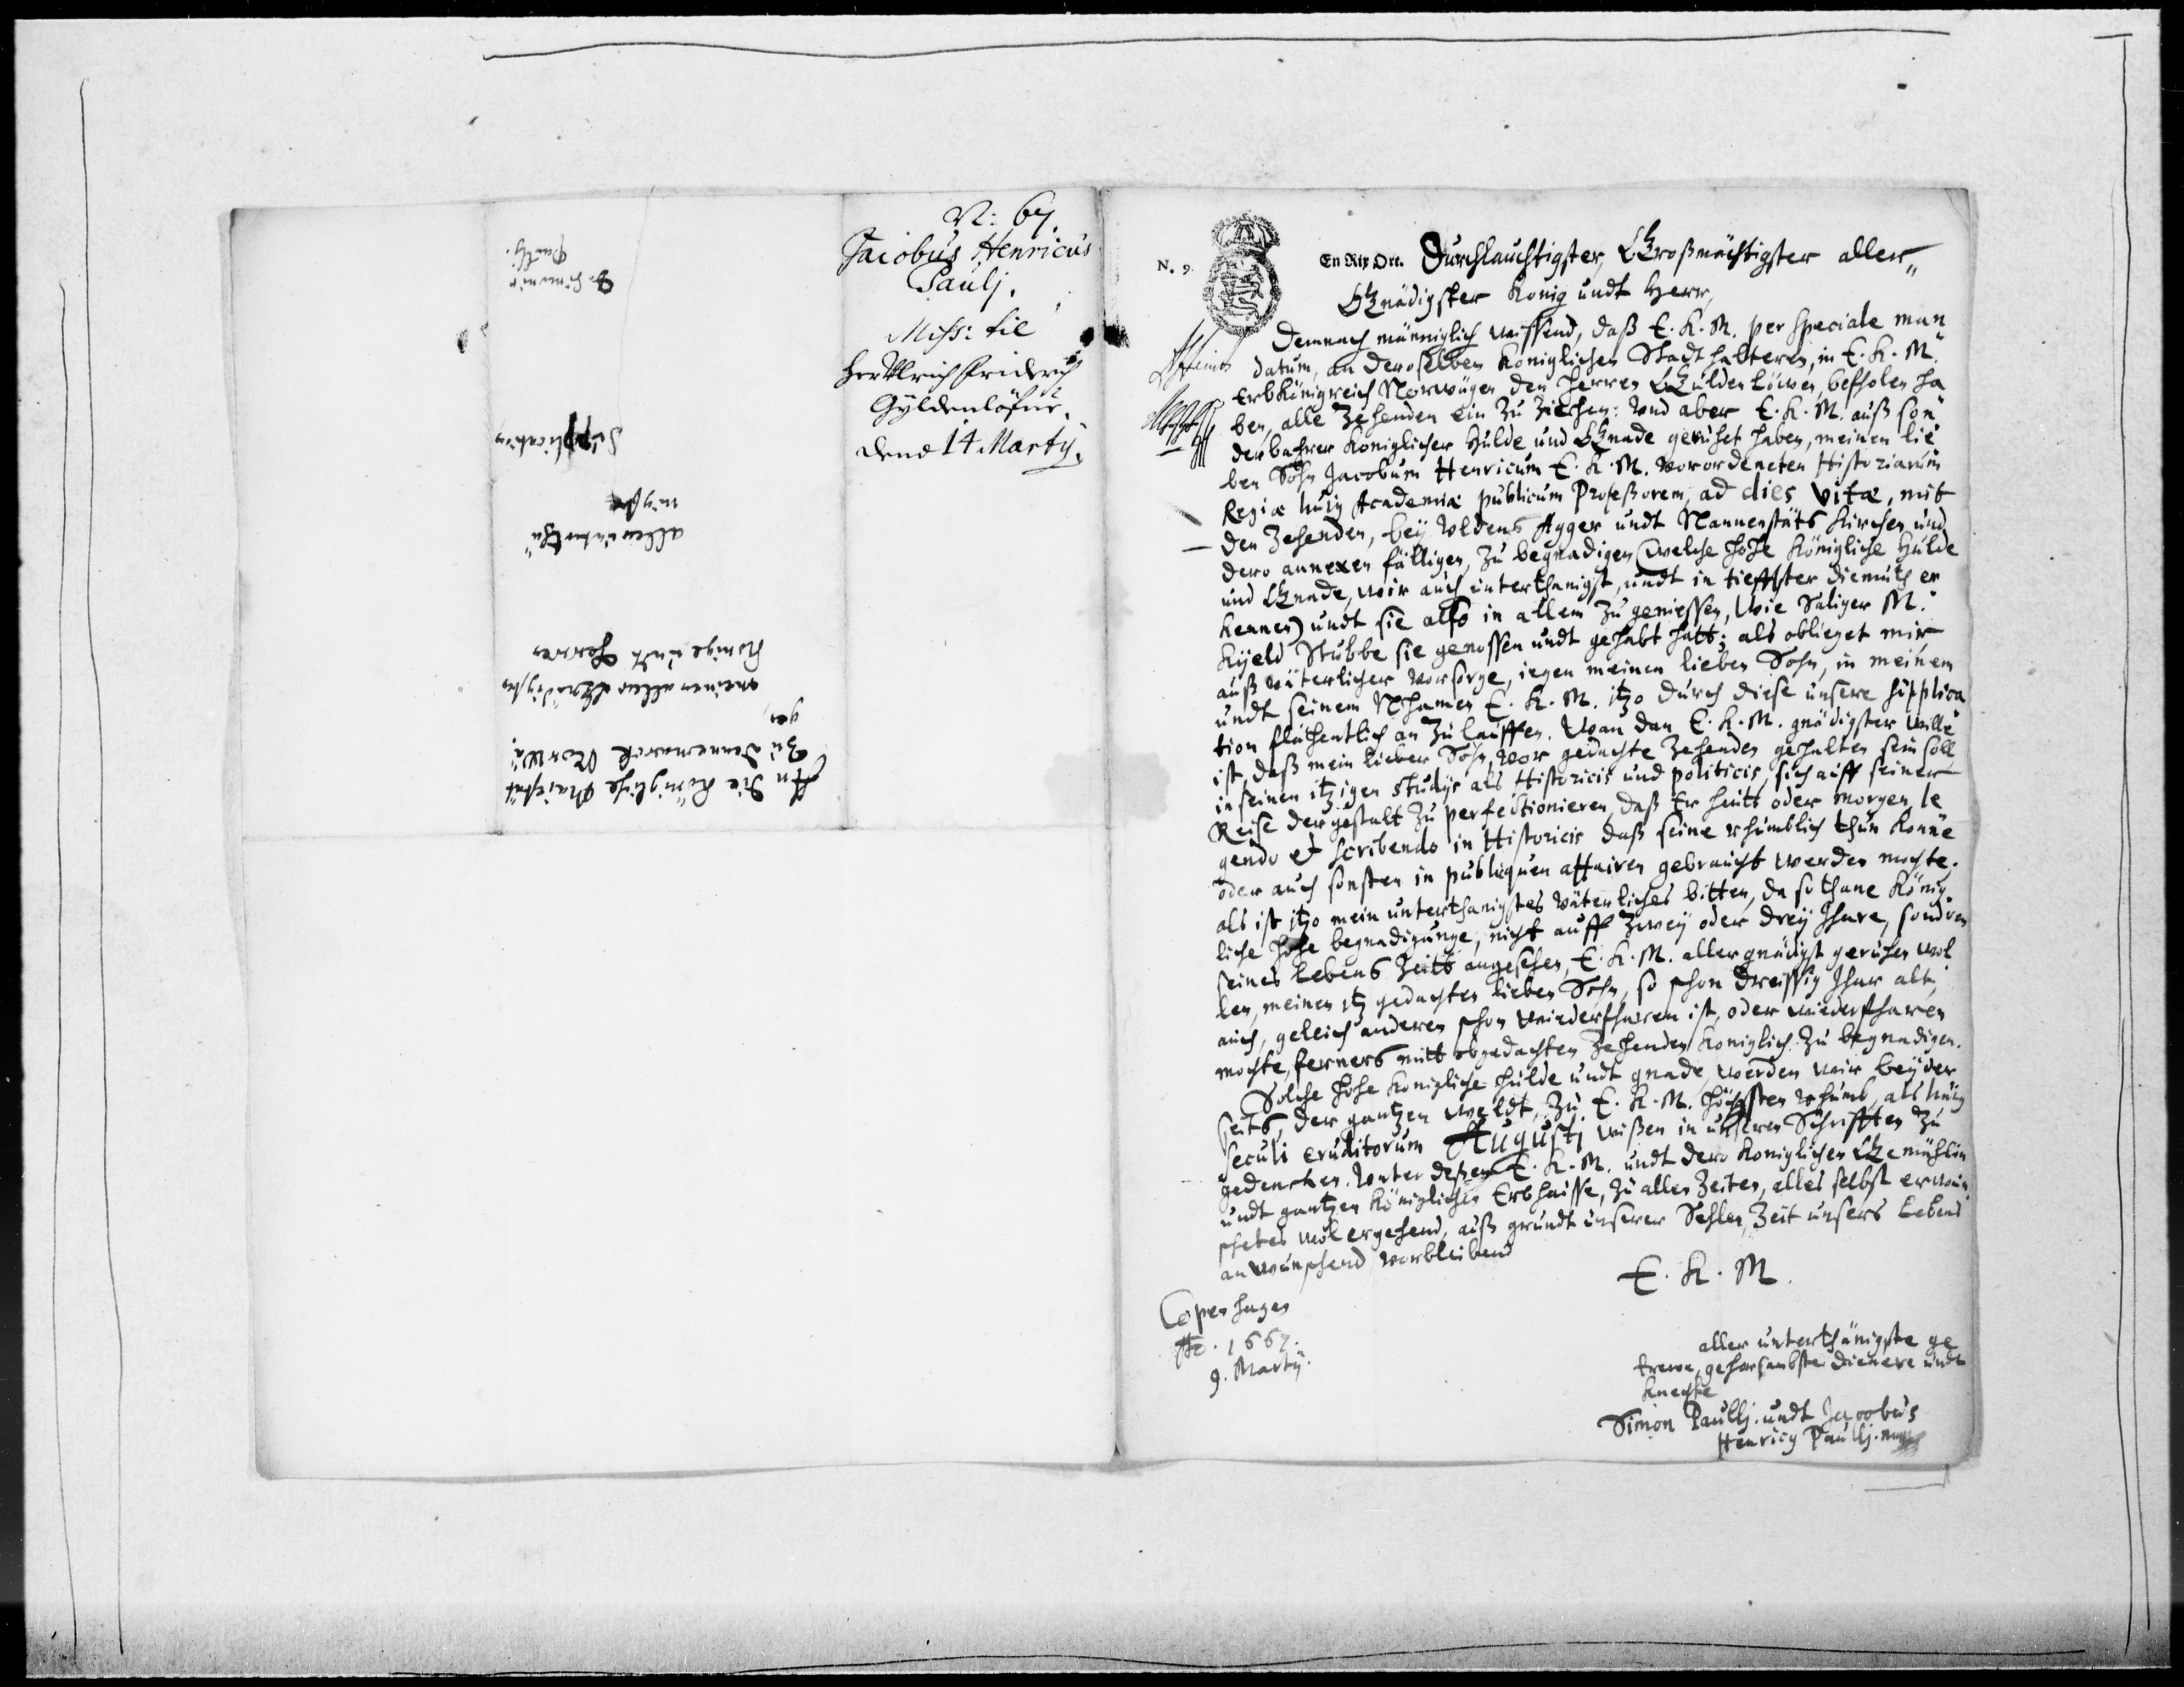 N: 67.
Jacobus Henricus
Paulj.
Miss: til
Her Ulrich Friderich
Gÿldenlöfue.
dend 14 Martÿ.
D. Simonis
Paullj.
Supplication
aller unterthä
nigste
meinen aller Gnädigsten
Konige undt Herren
An die Königliche Maiestät
Zu Dennemarck Norwe
gen
N. 9.
En Rix Ort. Durchlauchtigster, Großmächtigster aller„
Gnädigster Konig undt Herr,
Demnach männiglich wissend, daß E. K. M. per speciale man
datum, an deroselben Königlichen Stadthalteren, in E. K. M.
Erbkönigreich Norwügen den Herren Güldenlöwen, befholen ha
ben, alle Zehenden ein zu ziehen: Und aber E. K. M. auß son
derbahrer Koniglicher Hulde und Gnade geruhet haben, meinen lie
ben Sohn Jacobum Henricum E. K. M. verordeneten Historiarum
Regiæ huiq Academiæ publicum Profeßorem, ad dies vitæ, mit
den Zehenden, beÿ Uldens Agger undt Nannestäts Kirchen und
dero annexen fälligen, zu begnadigen (welche hohe Königliche Hulde
und Gnade, wir auch unterthanigst, undt in tieffster diemuth er
kennen) undt sie also in allem zu geniessen, wie Saliger M.
Kÿeld Stubbe sie genossen undt gehabt hatt; als oblieget mir
auß väterlicher vorsorge, iegen meinen lieben Sohn, in meinem
undt seinem Nhamen E. K. M. itzo durch diese unsere supplica
tion flühentlich an zu lauffen. Wan dan E. K. M. gnädigster wille
ist, daß mein lieber Sohn, vor gedachte Zehenden gehalten sein soll
in seinen itzigen studÿs als Historicis und politicis, sich auff seiner
Reise dergestalt zu perfectionieren, daß Er heute oder morgen, le
gendo et scribendo in Historicis daß seine rhümblich thun konne
oder auch sonsten in publiquen affairen gebraucht werden mochte.
als ist itzo mein unterthanigstes väterliches bitten, da sothane König
liche hohe begnadigunge, nicht auff zweÿ oder dreÿ Jhare, sondren
seines lebens Zeitt angesehen, E. K. M. allergnädigst geruhen wol
len, meinen itz gedachten lieben Sohn, so schon dreissig Jhar alt,
auch, geleich anderen schon wiederfharen ist, oder wiederfharen
mochte, ferners mitt obgedachten Zehenden Koniglich zu begnadigen.
Solche hohe Königliche hulde undt gnade, werden wir beÿder
seits, der gantzen weldt, zu E. K. M. höchsten rhumb, als huiq
seculi eruditorum Augusti wißen in unseren Schrifften zu
gedencken. Unter deßen E. K. M. undt dero Koniglichen Gemahlin
undt gantzen Königlichen Erbhausse, zu allen Zeiten, alles selbst erwün
schetes wolergehend, auß grundt unserer Sehlen, Zeit unsers lebens
anwünschend verbleibend
E. K. M.
Copenhagen
Ao. 1667.
9. Martÿ.
aller unterthänigste ge
trewe, gehorsambste dienere undt
Knechte
Simon Paullj. undt Jacobus
Henricq Paullj.